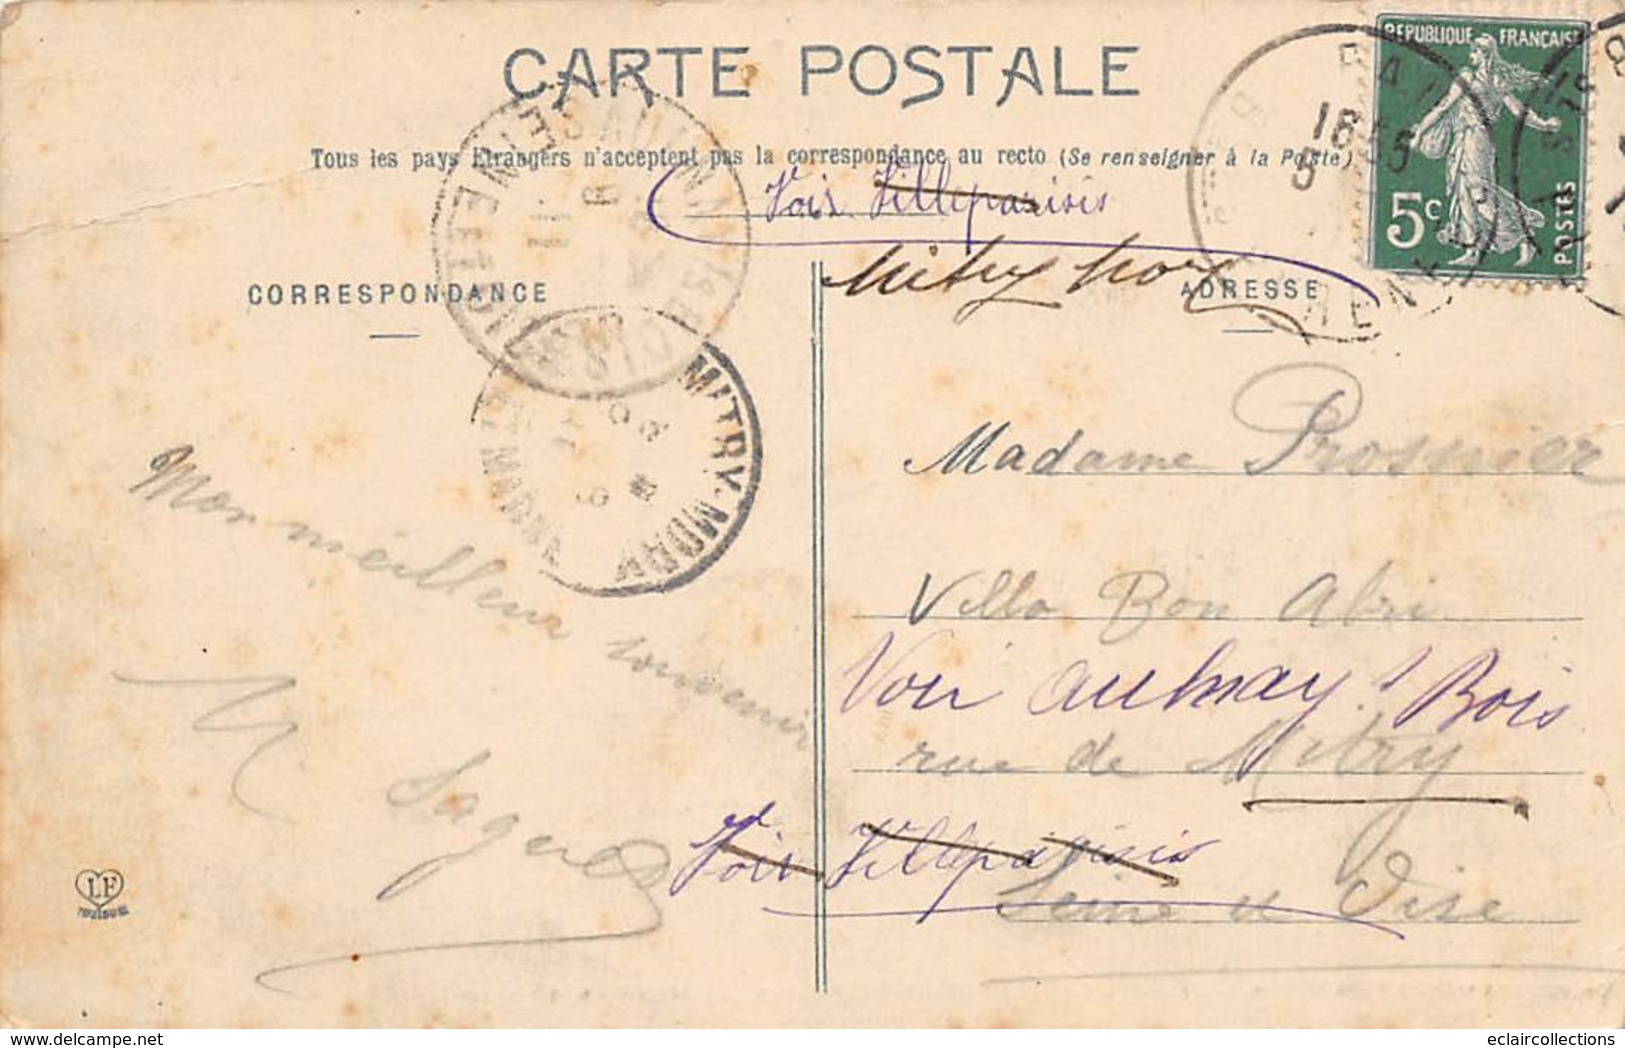 CARTE POSTALE
Tous les pays Etrangers n'acceptent pas la correspondance au recto (Se renseigner à la Poste)
REPUBLIQUE FRANÇAISE
5c
POSTES
18 35
5
Voir Villeparisis
Mitry Mory
CORRESPONDANCE
ADRESSE
MITRY-MORY
ET MARNE
Madame Prosnier
Mon méilleur souvenir
Villa Bon Abri
Voir Aulnay s/ Bois
rue de Mitry
Voir Villeparisis
Seine et Oise
LF
TOULOUSE
eclaircollections